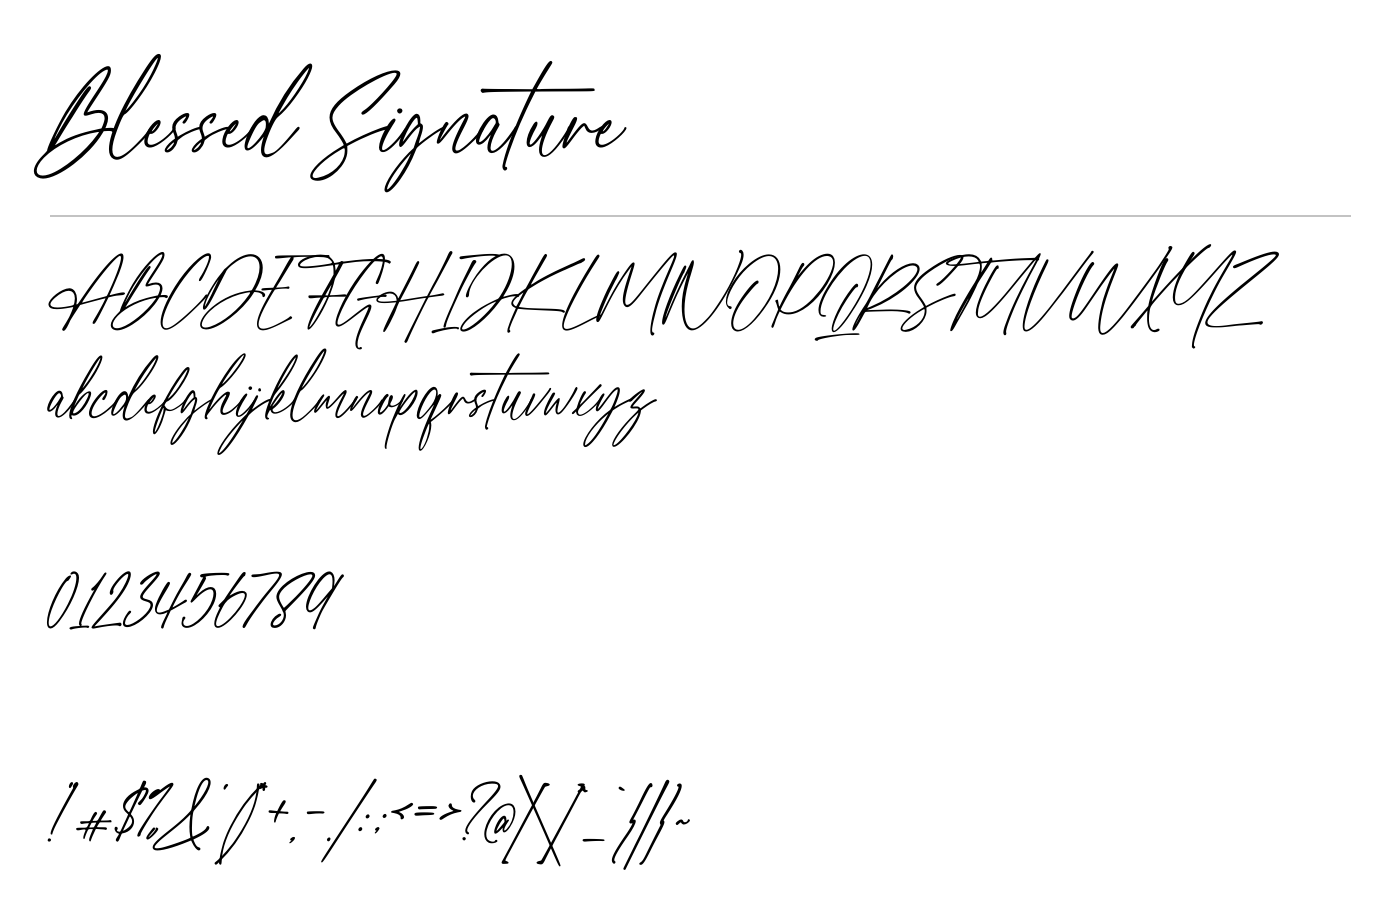 Blessed Signature
ABCDEFGHIJKLMNOPQRSTUVWXYZ
abcdefghijklmnopqrstuvwxyz
0123456789
!"#$%&'()*+,-./:;<=>?@[\]^_`{|}~